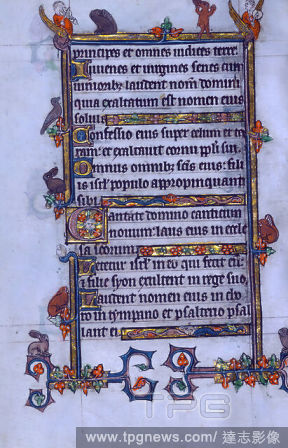 principes et omnes iudices terre.
Iuuenes et uirgines senes cum
iunioribus laudent nomen domini
quia exaltatum est nomen eius
solius
Confessio eius super celum et ter
ram: et exaltauit cornu ppli sui.
Ompnus omnibus scis eius: fili
is isrl populo appropinquanti
sibi.
Cantate domino canticum
nouum: laus eius in eccle
sia scorum.
Letetur isrl in eo qui fecit eum:
et filie syon exultent in rege suo.
Laudent nomen eius in cho
ro in tympano et psalterio psal
lant ei.
TPG
www.tpgnews.com/達志影像